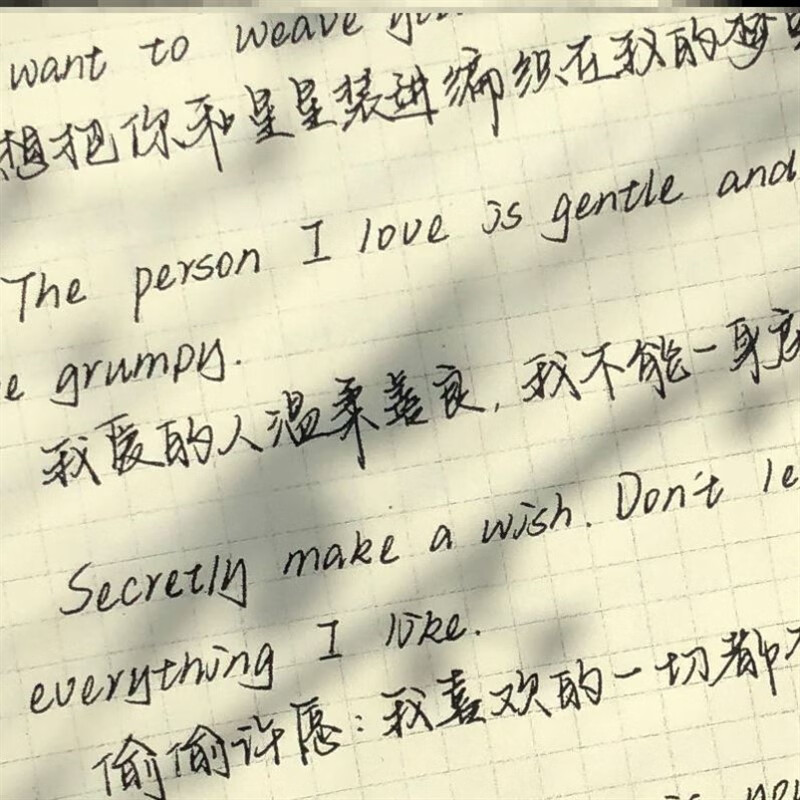 want to weave
想把你和星星装进编织在我的梦
The person I love is gentle and
e grumpy.
我爱的人温柔善良,我不能一身
Secretly make a wish. Don't le
everything I like.
偷偷许愿:我喜欢的一切都
is you